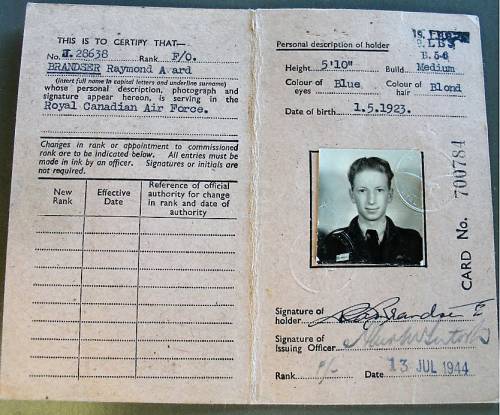 THIS IS TO CERTIFY THAT—
No. J. 28638 Rank F/O.
BRANDSER Raymond Award
(insert full name in capital letters and underline surname)
whose personal description, photograph and
signature appear hereon, is serving in the
Royal Canadian Air Force.
Changes in rank or appointment to commissioned
rank are to be indicated below. All entries must be
made in ink by an officer. Signatures or initials are
not required.
New Rank
Effective Date
Reference of official authority for change in rank and date of authority
Personal description of holder
Height 5'10" Build Medium
Colour of eyes Blue Colour of hair Blond
Date of birth 1.5.1923.
CARD No. 700784
Signature of holder
Signature of Issuing Officer
Rank Date 13 JUL 1944